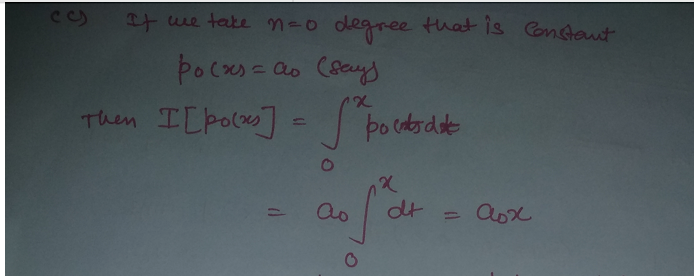 (c) If we take n=0 degree that is Constant
p₀(x) = a₀ (say)
Then I[p₀(x)] = ∫₀ˣ p₀(t)dt
= a₀ ∫₀ˣ dt = a₀x